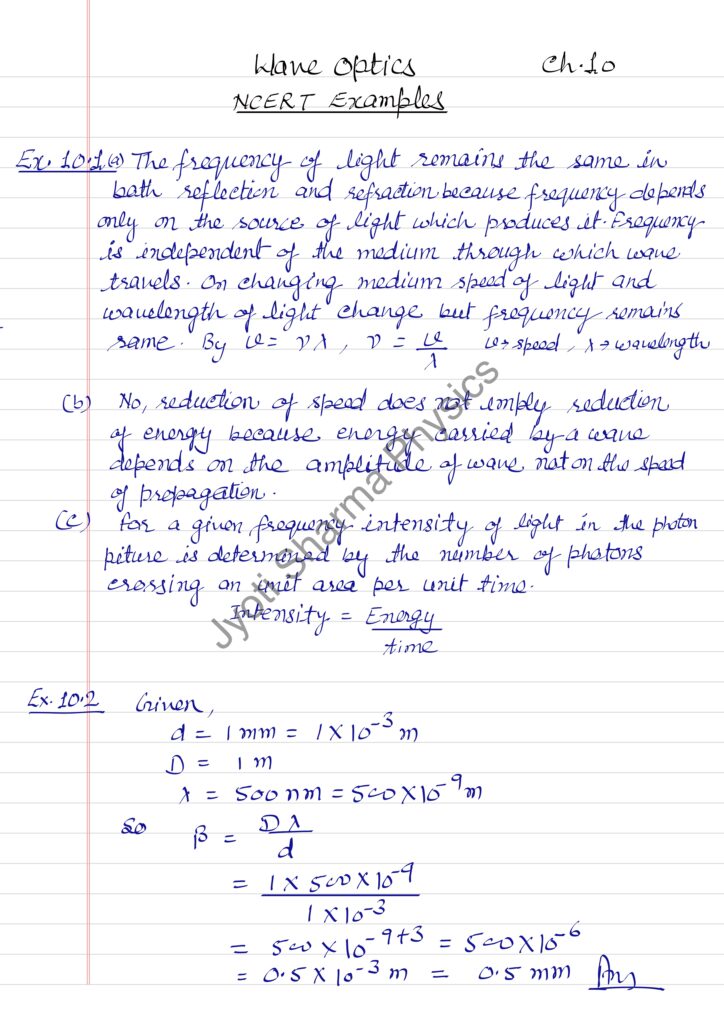 Wave Optics Ch.10
NCERT Examples
Ex. 10.1(a) The frequency of light remains the same in
both reflection and refraction because frequency depends
only on the source of light which produces it. Frequency
is independent of the medium through which wave
travels. On changing medium speed of light and
wavelength of light change but frequency remains
same. By v = νλ, ν = v/λ v→ speed, λ→ wavelength
(b) No, reduction of speed does not imply reduction
of energy because energy carried by a wave
depends on the amplitude of wave not on the speed
of propagation.
(c) for a given frequency intensity of light in the photon
piture is determined by the number of photons
crossing an unit area per unit time.
Intensity = Energy/time
Jyoti Sharma Physics
Ex. 10.2 Given,
d = 1 mm = 1×10⁻³ m
D = 1 m
λ = 500 nm = 500×10⁻⁹ m
So β = Dλ/d
= 1×500×10⁻⁹/1×10⁻³
= 500×10⁻⁹⁺³ = 500×10⁻⁶
= 0.5×10⁻³ m = 0.5 mm Ans